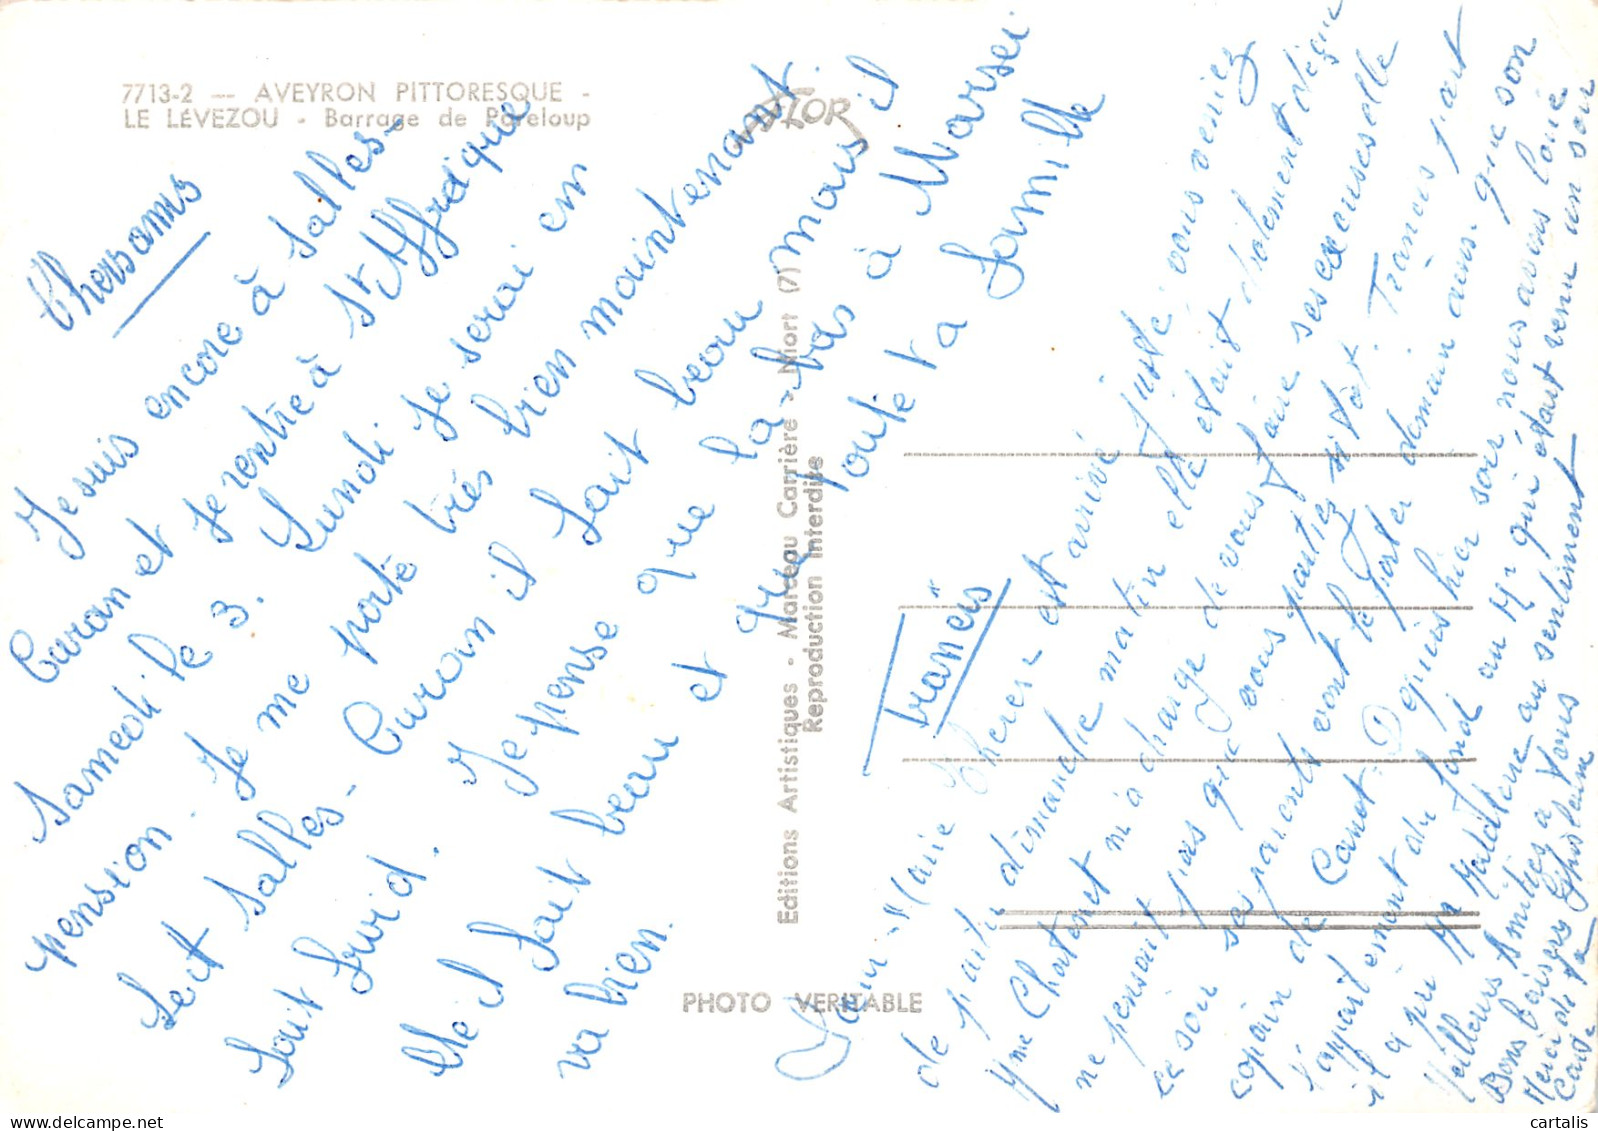 7713-2 — AVEYRON PITTORESQUE -
LE LÉVEZOU - Barrage de Pareloup
Chers amis
Je suis encore à Salles-
Curan et je rentre à St Affrique
Samedi le 3. Lundi je serai en
pension. Je me porte très bien maintenant.
Salles-Curan il fait beau mais il
fait froid. Je pense que la-bas à Marsei
lle il fait beau et que toute ta famille
va bien.
Francis
Editions Artistiques - Marceau Carrière - Niort (7)
Reproduction Interdite
PHOTO VERITABLE
Jean-Marie
Chères est arrivé juste vous veniez
de partir dimanche matin elle etait drolement déçue
Mme Chatenet m'a chargé de vous faire ses excuses elle
ne pensait pas que vous partiez si tôt. Francis part
ce soir ses parents vont le porter demain aussi que son
copain de Canot. Depuis hier soir nous avons loué
l'appartement du fond au Mr qui était venu un soir
il a pris Mr au sentiment
Meilleurs Amitiés à Vous
Bons baisers Ghislaine
Merci de ta
Carte
cartalis